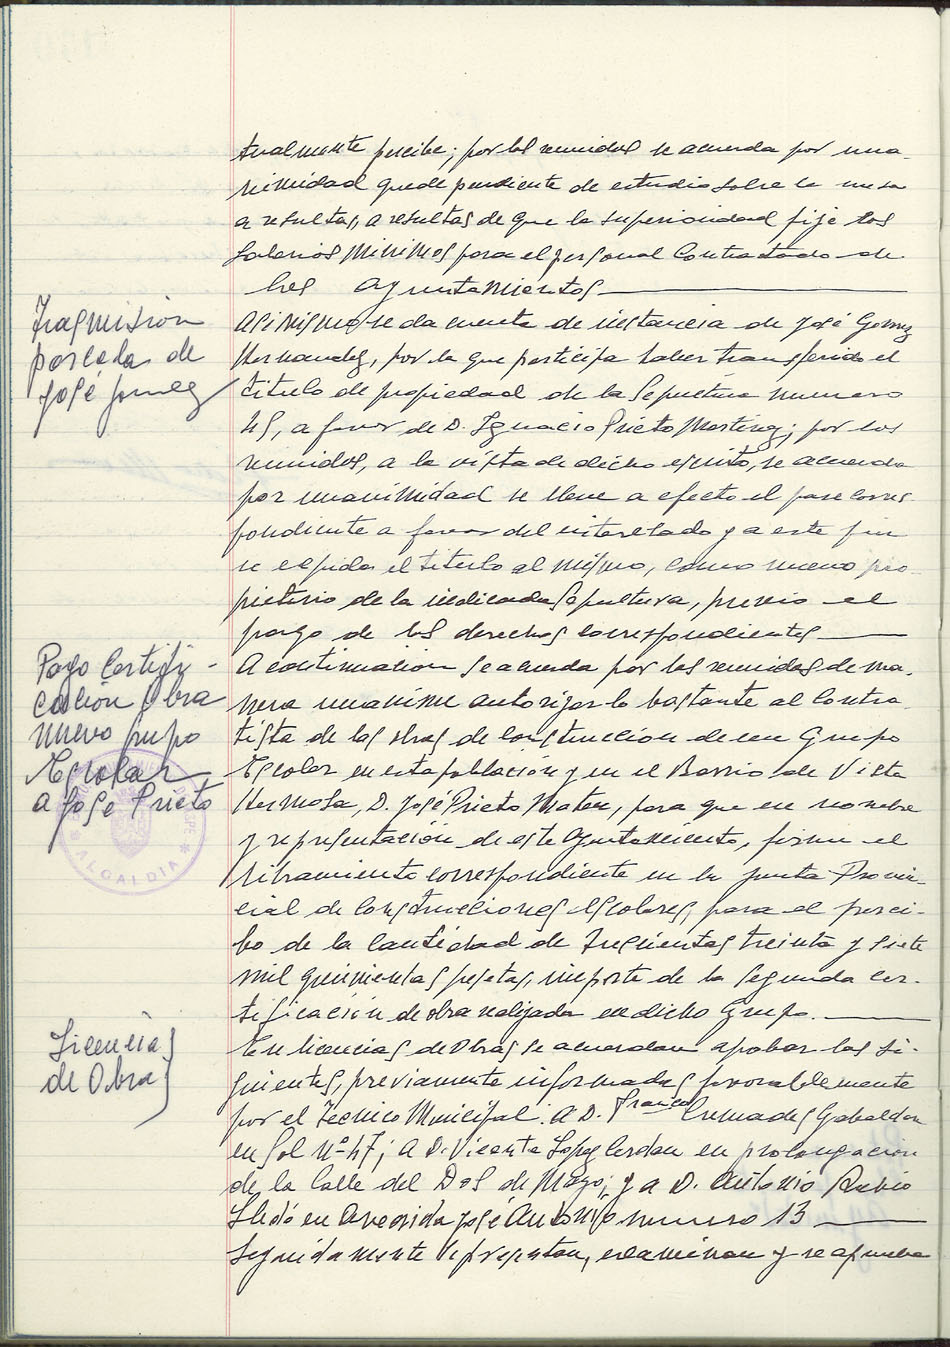 tualmente percibe; por los reunidos se acuerda por una-
nimidad quede pendiente de estudio sobre la mesa
a resultas, a resultas de que la superioridad fije los
salarios minimos para el personal Contratado de
los ayuntamientos
Trasmision
parcela de
José Gomez
Asimismo se da cuenta de instancia de José Gomez
Hernandez, por la que participa haber transferido el
titulo de propiedad de la Sepultura numero
45, a favor de D. Ignacio Prieto Martinez; por los
reunidos, a la vista de dicho escrito, se acuerda
por unanimidad se lleve a efecto el pase corres
pondiente a favor del interesado y a este fin
se expida el titulo al mismo, como nuevo pro-
pietario de la indicada Sepultura, previo el
pago de los derechos correspondientes
Pago Certifi-
cación Obra
nuevo Grupo
Escolar
a José Prieto
A continuacion se acuerda por los reunidos de ma-
nera unanime autorizar lo bastante al Contra-
tista de las obras de construccion de un Grupo
Escolar en esta población y en el Barrio de Vista
Hermosa, D. José Prieto Mater, para que en nombre
y representación de este Ayuntamiento, firme el
libramiento correspondiente en la Junta Provin-
cial de Construcciones Escolares, para el perci-
bo de la cantidad de trescientas treinta y siete
mil quinientas pesetas, importe de la segunda cer-
tificación de obra realizada en dicho Grupo.
ALCALDIA
Licencias
de Obras
En licencias de Obras se acuerdan aprobar las si-
guientes, previamente informadas favorablemente
por el Tecnico Municipal. A D. Francº Cremades Gabaldon
en Sol Nº 47; a D. Vicente Lopez Cerdan en prolongacion
de la Calle del Dos de Mayo; y a D. Antonio Rubio
Lledó en Avenida José Antonio numero 13
Seguidamente se presentan, examinan y se aprueba